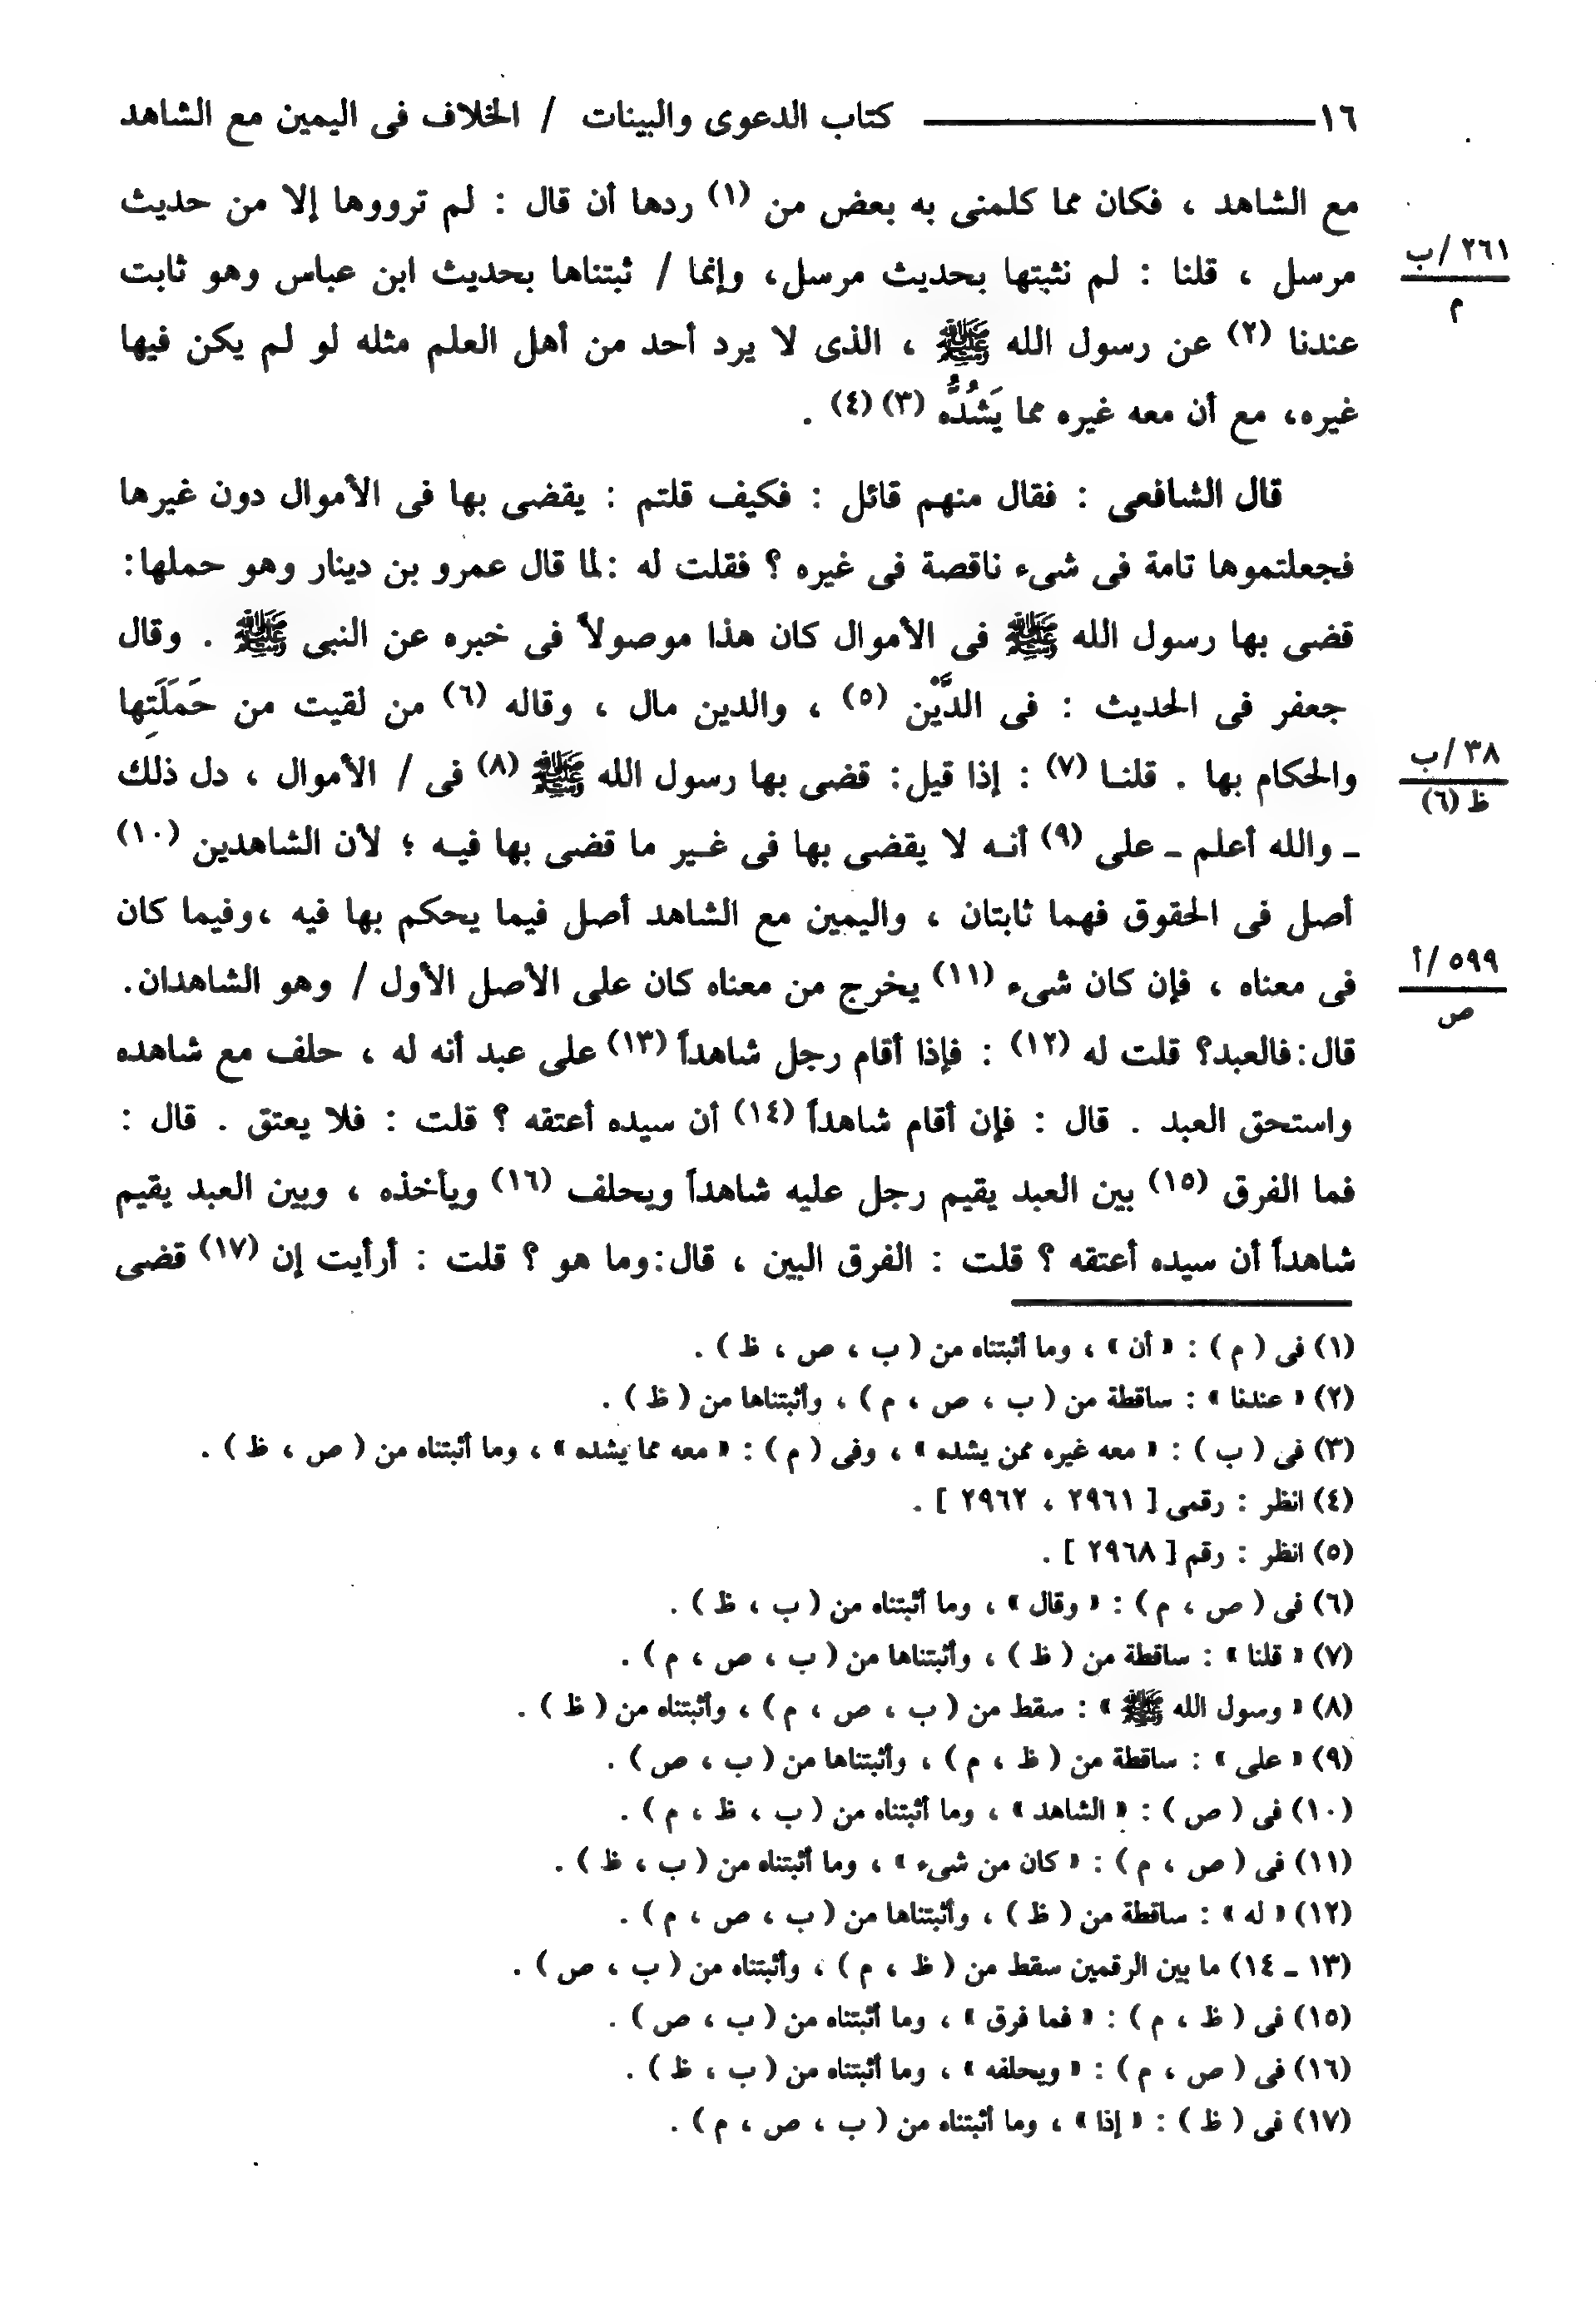 ١٦ كتاب الدعوى والبينات / الخلاف فى اليمين مع الشاهد
مع الشاهد ، فكان مما كلمنى به بعض من (١) ردها أن قال : لم ترووها إلا من حديث
٢٦١/ب
م
مرسل ، قلنا : لم نثبتها بحديث مرسل، وإنما / ثبتناها بحديث ابن عباس وهو ثابت
عندنا (٢) عن رسول الله ﷺ ، الذى لا يرد أحد من أهل العلم مثله لو لم يكن فيها
غيره، مع أن معه غيره مما يَشُدُّه (٣) (٤) .
قال الشافعى : فقال منهم قائل : فكيف قلتم : يقضى بها فى الأموال دون غيرها
فجعلتموها تامة فى شىء ناقصة فى غيره ؟ فقلت له :لما قال عمرو بن دينار وهو حملها:
قضى بها رسول الله ﷺ فى الأموال كان هذا موصولاً فى خبره عن النبى ﷺ . وقال
جعفر فى الحديث : فى الدَّيْن (٥) ، والدين مال ، وقاله (٦) من لقيت من حَمَلَتِها
٣٨/ب
ظ (٦)
والحكام بها . قلنـا (٧) : إذا قيل: قضى بها رسول الله ﷺ (٨) فى / الأموال ، دل ذلك
ـ والله أعلم ـ على (٩) أنـه لا يقضى بها فى غـير ما قضى بها فيـه ؛ لأن الشاهدين (١٠)
أصل فى الحقوق فهما ثابتان ، واليمين مع الشاهد أصل فيما يحكم بها فيه ،وفيما كان
٥٩٩/أ
ص
فى معناه ، فإن كان شىء (١١) يخرج من معناه كان على الأصل الأول / وهو الشاهدان.
قال:فالعبد؟ قلت له (١٢) : فإذا أقام رجل شاهداً (١٣) على عبد أنه له ، حلف مع شاهده
واستحق العبد . قال : فإن أقام شاهداً (١٤) أن سيده أعتقه ؟ قلت : فلا يعتق . قال :
فما الفرق (١٥) بين العبد يقيم رجل عليه شاهداً ويحلف (١٦) ويأخذه ، وبين العبد يقيم
شاهداً أن سيده أعتقه ؟ قلت : الفرق البين ، قال:وما هو ؟ قلت : أرأيت إن (١٧) قضى
(١) فى ( م ) : « أن » ، وما أثبتناه من ( ب ، ص ، ظ ) .
(٢) « عندنا » : ساقطة من ( ب ، ص ، م ) ، وأثبتناها من ( ظ ) .
(٣) فى ( ب ) : « معه غيره ممن يشده » ، وفى ( م ) : « معه مما يشده » ، وما أثبتناه من ( ص ، ظ ) .
(٤) انظر : رقمى [ ٢٩٦١ ، ٢٩٦٢ ] .
(٥) انظر : رقم [ ٢٩٦٨ ] .
(٦) فى ( ص ، م ) : « وقال » ، وما أثبتناه من ( ب ، ظ ) .
(٧) « قلنا » : ساقطة من ( ظ ) ، وأثبتناها من ( ب ، ص ، م ) .
(٨) « وسول الله ﷺ » : سقط من ( ب ، ص ، م ) ، وأثبتناه من ( ظ ) .
(٩) « على » : ساقطة من ( ظ ، م ) ، وأثبتناها من ( ب ، ص ) .
(١٠) فى ( ص ) : « الشاهد » ، وما أثبتناه من ( ب ، ظ ، م ) .
(١١) فى ( ص ، م ) : « كان من شىء » ، وما أثبتناه من ( ب ، ظ ) .
(١٢) « له » : ساقطة من ( ظ ) ، وأثبتناها من ( ب ، ص ، م ) .
(١٣ ـ ١٤) ما بين الرقمين سقط من ( ظ ، م ) ، وأثبتناه من ( ب ، ص ) .
(١٥) فى ( ظ ، م ) : « فما فرق » ، وما أثبتناه من ( ب ، ص ) .
(١٦) فى ( ص ، م ) : « ويحلفه » ، وما أثبتناه من ( ب ، ظ ) .
(١٧) فى ( ظ ) : « إذا » ، وما أثبتناه من ( ب ، ص ، م ) .